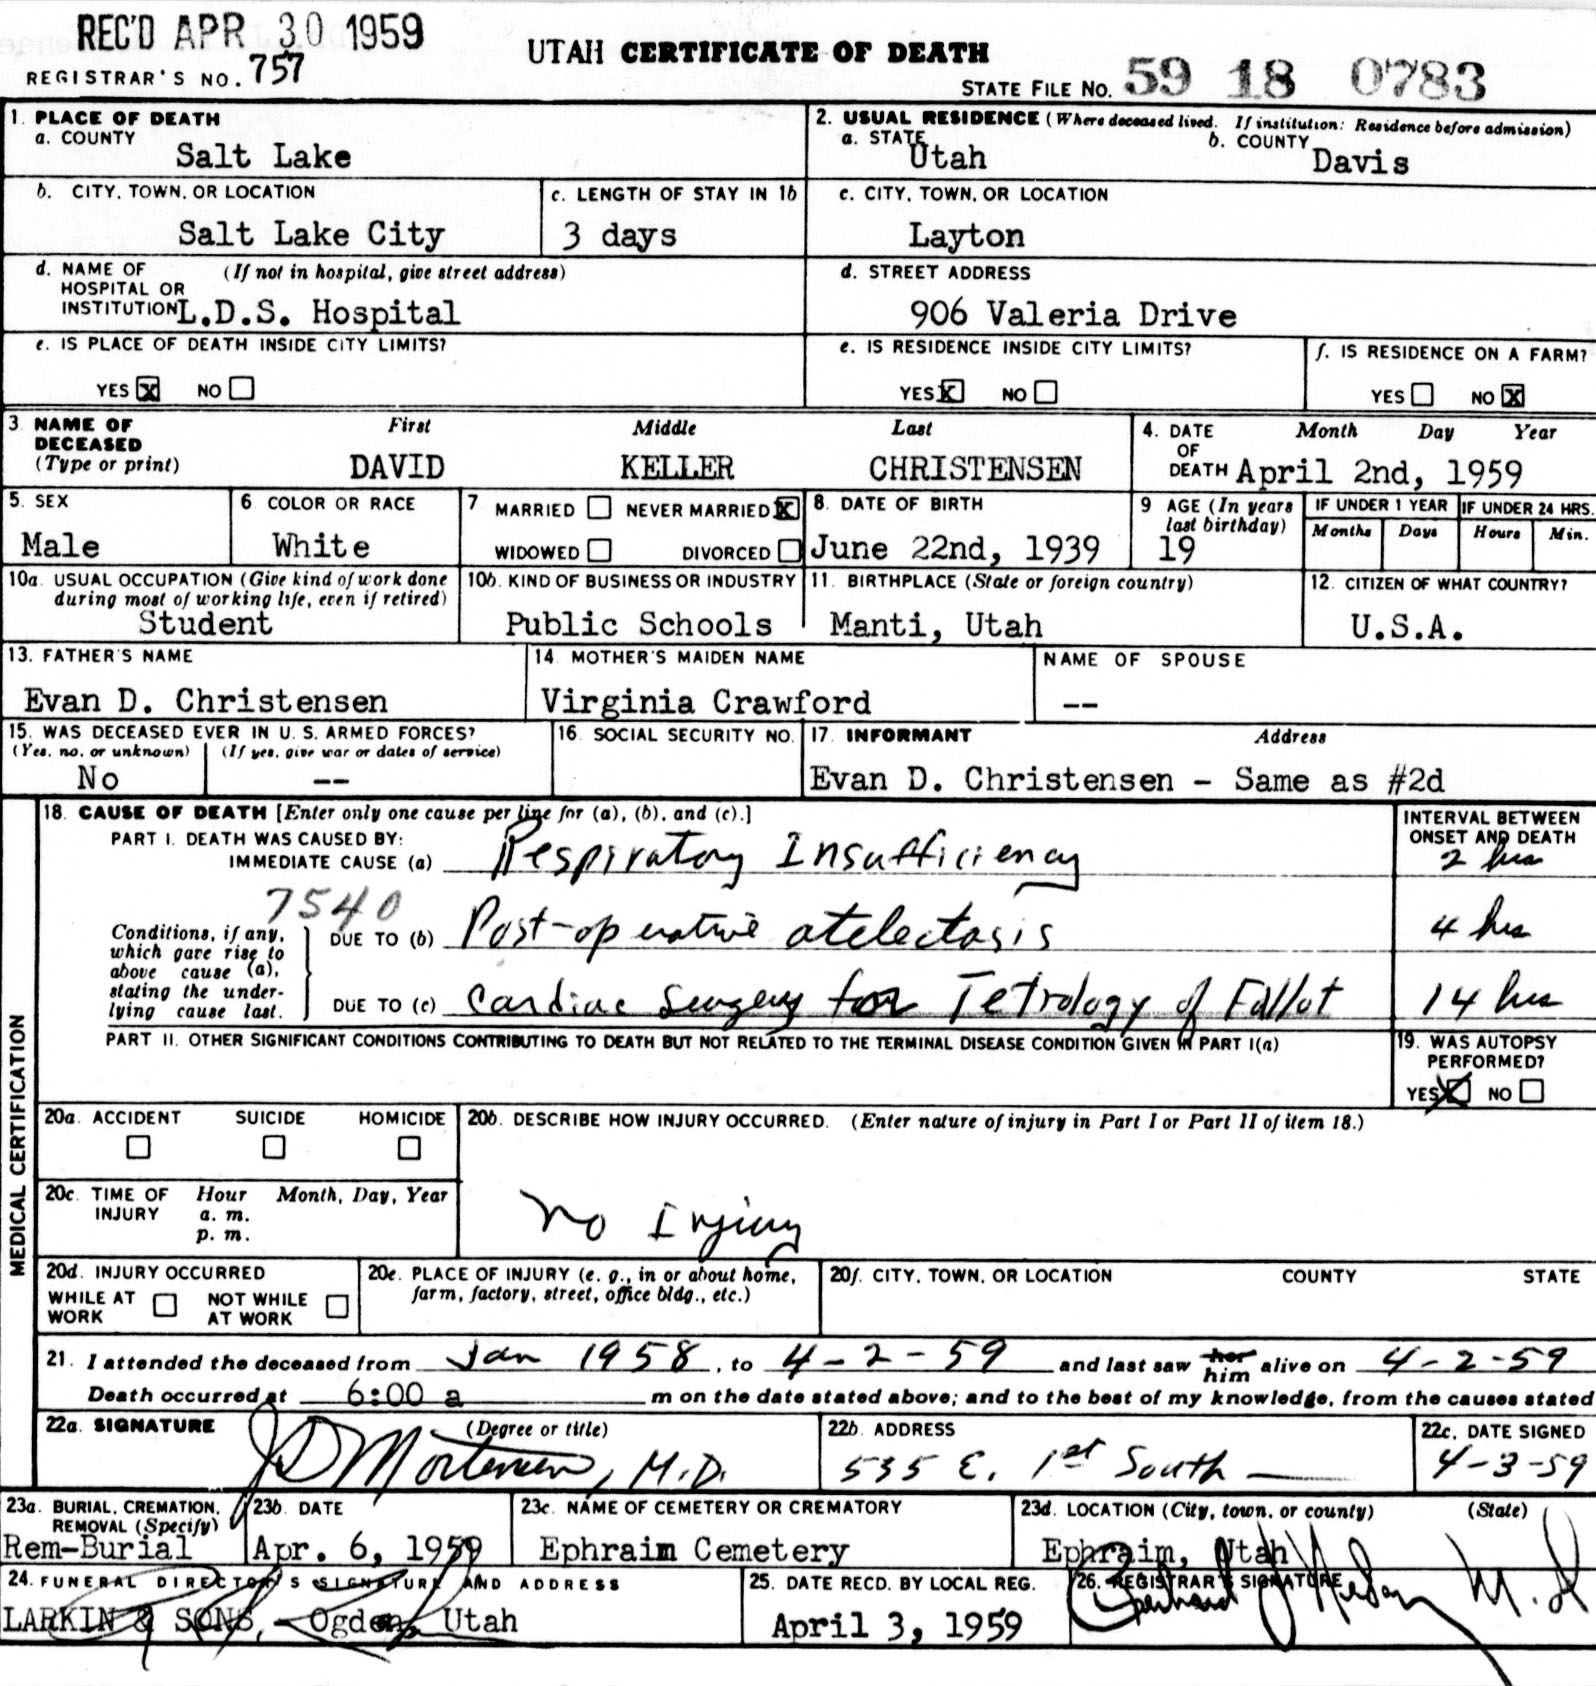 REC'D APR 30 1959
REGISTRAR'S NO. 757
UTAH CERTIFICATE OF DEATH
STATE FILE NO. 59 18 0783
1. PLACE OF DEATH
a. COUNTY
Salt Lake
2. USUAL RESIDENCE (Where deceased lived. If institution: Residence before admission)
a. STATE Utah
b. COUNTY Davis
b. CITY, TOWN, OR LOCATION
Salt Lake City
c. LENGTH OF STAY IN 1b
3 days
c. CITY, TOWN, OR LOCATION
Layton
d. NAME OF HOSPITAL OR INSTITUTION (If not in hospital, give street address)
L.D.S. Hospital
d. STREET ADDRESS
906 Valeria Drive
e. IS PLACE OF DEATH INSIDE CITY LIMITS?
YES X NO
e. IS RESIDENCE INSIDE CITY LIMITS?
YES X NO
f. IS RESIDENCE ON A FARM?
YES NO X
3 NAME OF DECEASED (Type or print)
First Middle Last
DAVID KELLER CHRISTENSEN
4. DATE OF DEATH Month Day Year
April 2nd, 1959
5. SEX
Male
6 COLOR OR RACE
White
7 MARRIED NEVER MARRIED X
WIDOWED DIVORCED
8. DATE OF BIRTH
June 22nd, 1939
9 AGE (In years last birthday)
19
IF UNDER 1 YEAR
Months Days
IF UNDER 24 HRS.
Hours Min.
10a. USUAL OCCUPATION (Give kind of work done during most of working life, even if retired)
Student
10b. KIND OF BUSINESS OR INDUSTRY
Public Schools
11. BIRTHPLACE (State or foreign country)
Manti, Utah
12. CITIZEN OF WHAT COUNTRY?
U.S.A.
13. FATHER'S NAME
Evan D. Christensen
14. MOTHER'S MAIDEN NAME
Virginia Crawford
NAME OF SPOUSE
--
15. WAS DECEASED EVER IN U. S. ARMED FORCES?
(Yes, no, or unknown) (If yes, give war or dates of service)
No --
16. SOCIAL SECURITY NO.
17. INFORMANT Address
Evan D. Christensen - Same as #2d
MEDICAL CERTIFICATION
18. CAUSE OF DEATH [Enter only one cause per line for (a), (b), and (c).]
INTERVAL BETWEEN ONSET AND DEATH
PART I. DEATH WAS CAUSED BY:
IMMEDIATE CAUSE (a) Respiratory Insufficiency 2 hrs
7540
Conditions, if any, which gave rise to above cause (a), stating the underlying cause last.
DUE TO (b) Post-operative atelectasis 4 hrs
DUE TO (c) Cardiac Surgery for Tetrology of Fallot 14 hrs
PART II. OTHER SIGNIFICANT CONDITIONS CONTRIBUTING TO DEATH BUT NOT RELATED TO THE TERMINAL DISEASE CONDITION GIVEN IN PART I(a)
19. WAS AUTOPSY PERFORMED?
YES X NO
20a. ACCIDENT SUICIDE HOMICIDE
20b. DESCRIBE HOW INJURY OCCURRED. (Enter nature of injury in Part I or Part II of item 18.)
No Injury
20c. TIME OF INJURY Hour a. m. p. m. Month, Day, Year
20d. INJURY OCCURRED
WHILE AT WORK NOT WHILE AT WORK
20e. PLACE OF INJURY (e. g., in or about home, farm, factory, street, office bldg., etc.)
20f. CITY, TOWN, OR LOCATION COUNTY STATE
21. I attended the deceased from Jan 1958, to 4-2-59 and last saw her him alive on 4-2-59
Death occurred at 6:00 a m on the date stated above; and to the best of my knowledge, from the causes stated
22a. SIGNATURE (Degree or title)
JD Mortensen, M.D.
22b. ADDRESS
535 E. 1st South
22c. DATE SIGNED
4-3-59
23a. BURIAL, CREMATION, REMOVAL (Specify)
Rem-Burial
23b. DATE
Apr. 6, 1959
23c. NAME OF CEMETERY OR CREMATORY
Ephraim Cemetery
23d. LOCATION (City, town, or county) (State)
Ephraim, Utah
24. FUNERAL DIRECTOR'S SIGNATURE AND ADDRESS
LARKIN & SONS, - Ogden, Utah
25. DATE RECD. BY LOCAL REG.
April 3, 1959
26. REGISTRAR'S SIGNATURE